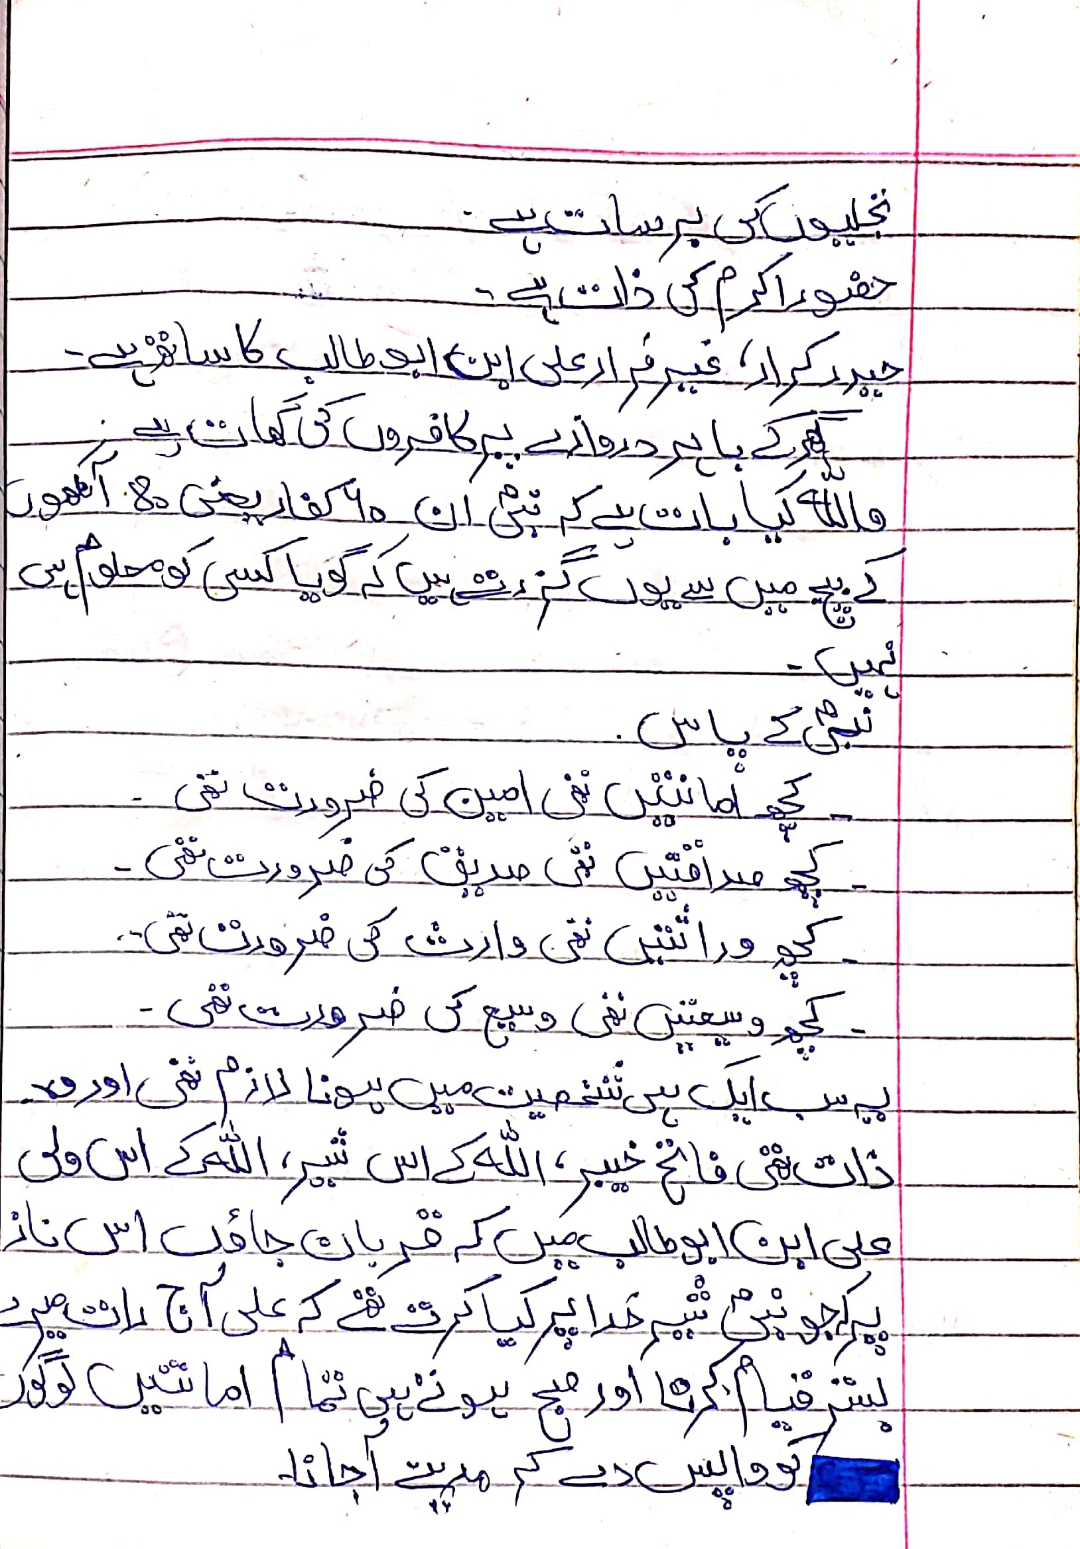 تجلیوں کی برسات ہے۔
حضور اکرمؐ کی ذات ہے۔
حیدر کرار، غیر فرار علی ابن ابو طالب کا ساتھ ہے۔
گھر کے باہر دروازے پر کافروں کی گھات ہے
واللہ کیا بات ہے کہ نبیؐ ان ۴۰ کفار یعنی 80 آنکھوں
کے بیچ میں سے یوں گزرتے ہیں کہ گویا کسی کو معلوم ہی
نہیں۔
نبیؐ کے پاس۔
- کچھ امانتیں تھی امین کی ضرورت تھی۔
- کچھ صداقتیں تھی صدیق کی ضرورت تھی۔
- کچھ وراثتیں تھی وارث کی ضرورت تھی۔
- کچھ وسیعتیں تھی وسیع کی ضرورت تھی۔
یہ سب ایک ہی شخصیت میں ہونا لازم تھی اور وہ
ذات تھی فاتح خیبر، اللہ کے اس شیر، اللہ کے اس ولی
علی ابن ابو طالب میں کہ قربان جاؤں اس ناز
پر جو نبیؐ شیر خدا پر کیا کرتے تھے کہ علی آج رات میرے
بستر قیام کرنا اور صبح ہوتے ہی تمام امانتیں لوگوں
کو واپس دے کر مدینے آجانا۔